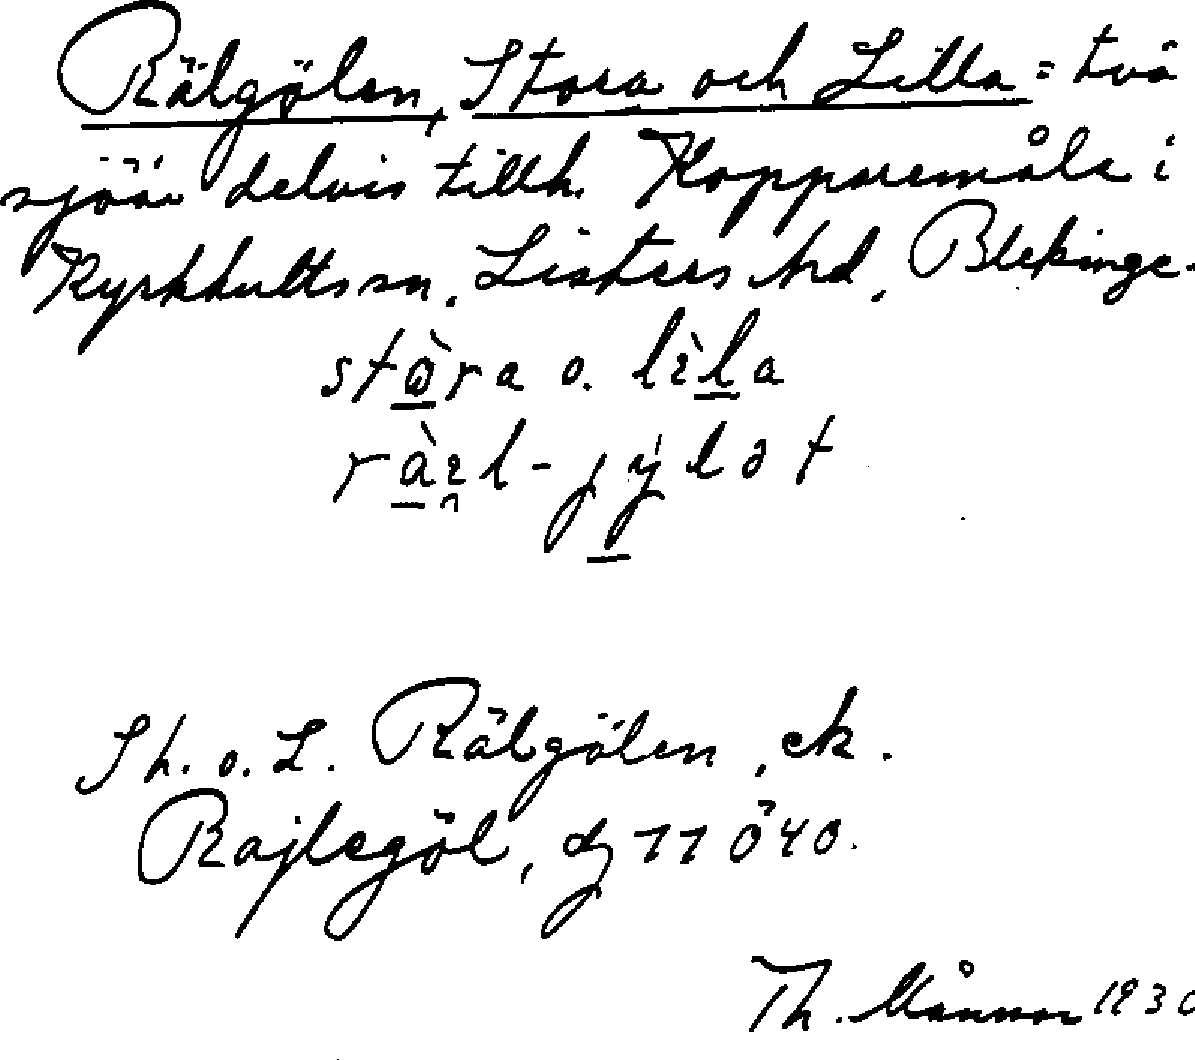 Rälgölen, Stora och Lilla = två
sjöar delvis tillh. Kopparemåla i
Kyrkhults sn. Listers hd, Blekinge.
stò̱ra o. lìḻa
rà̱ı̯l-jý̱lət
St. o. L. Rälgölen, ek.
Rajlegöl, 11 ö 40.
Th. 1930